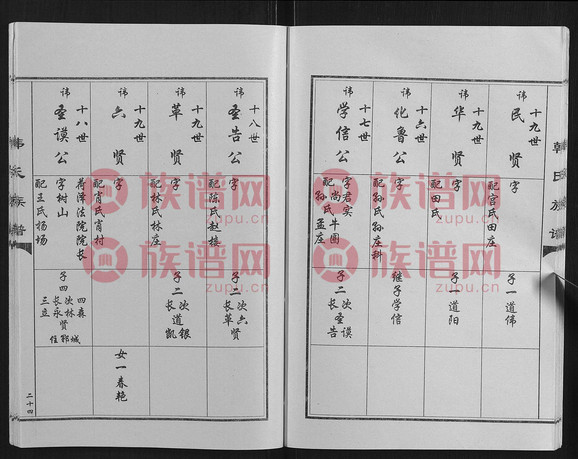 韩氏族谱
十九世
讳
民贤
字
配宫氏田庄
子一道伟
十九世
讳
华贤
字
配田氏
子一道阳
十六世
讳
化鲁公
字
配孙氏孙庄科
继子学信
十七世
讳
学信公
字君实
配尚氏牛圈
孙氏孟庄
子二
次圣谟
长圣告
十八世
讳
圣告公
字
配陈氏赵楼
子二
次六贤
长革贤
十九世
讳
革贤
字
配林氏林庄
子二
次道银
长道凯
十九世
讳
六贤
字
配肖氏肖村
女一春艳
十八世
讳
圣谟公
荷泽法院院长
字树山
配王氏杨场
子四
长永贤
次林
三立
四森
住郓城
二十四
族谱网
zupu.cn
族谱网
zupu.cn
族谱网
zupu.cn
族谱网
zupu.cn